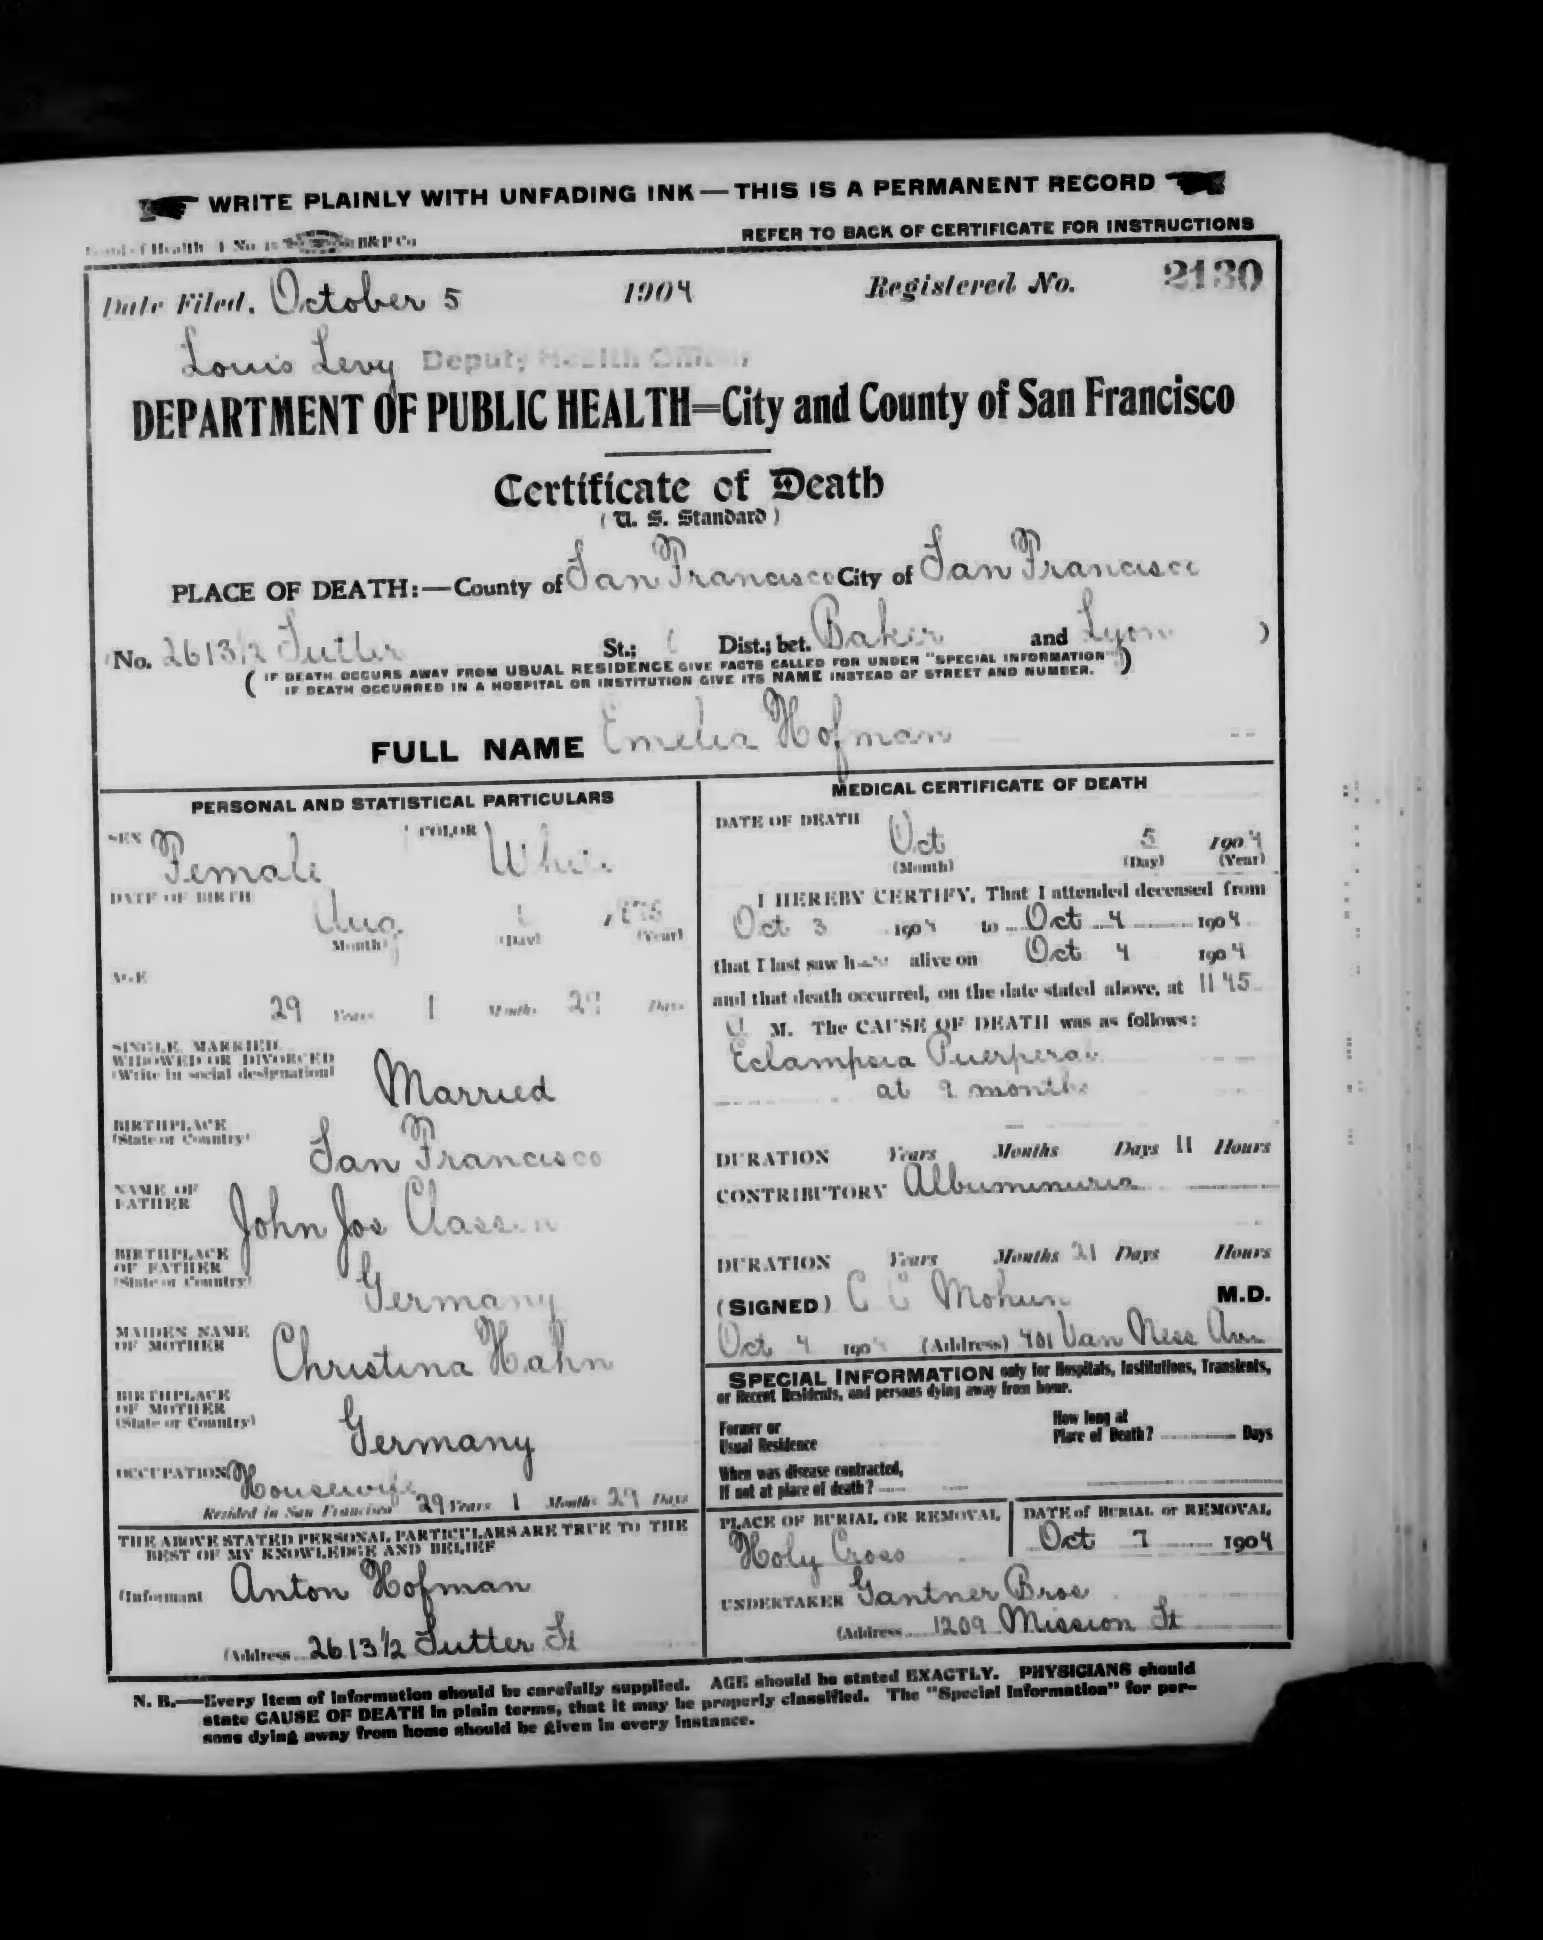 WRITE PLAINLY WITH UNFADING INK — THIS IS A PERMANENT RECORD
Board of Health B&P Co
REFER TO BACK OF CERTIFICATE FOR INSTRUCTIONS
Date Filed, October 5 1904 Registered No. 2130
Louis Levy Deputy Health Officer
DEPARTMENT OF PUBLIC HEALTH=City and County of San Francisco
Certificate of Death
( U. S. Standard )
PLACE OF DEATH:—County of San Francisco City of San Francisco
No. 2613½ Sutter St.; Dist.; bet. Baker and Lyon )
( IF DEATH OCCURS AWAY FROM USUAL RESIDENCE GIVE FACTS CALLED FOR UNDER "SPECIAL INFORMATION" )
IF DEATH OCCURRED IN A HOSPITAL OR INSTITUTION GIVE ITS NAME INSTEAD OF STREET AND NUMBER.
FULL NAME Emelia Hofman
PERSONAL AND STATISTICAL PARTICULARS
SEX Female COLOR White
DATE OF BIRTH
Aug 1 1875
(Month) (Day) (Year)
AGE
29 Years 1 Months 29 Days
SINGLE, MARRIED,
WIDOWED OR DIVORCED
(Write in social designation)
Married
BIRTHPLACE
(State or Country)
San Francisco
NAME OF
FATHER
John Jos Classen
BIRTHPLACE
OF FATHER
(State or Country)
Germany
MAIDEN NAME
OF MOTHER
Christina Hahn
BIRTHPLACE
OF MOTHER
(State or Country)
Germany
OCCUPATION Housewife
Resided in San Francisco 29 Years 1 Months 29 Days
THE ABOVE STATED PERSONAL PARTICULARS ARE TRUE TO THE
BEST OF MY KNOWLEDGE AND BELIEF
(Informant Anton Hofman
(Address 2613½ Sutter St
MEDICAL CERTIFICATE OF DEATH
DATE OF DEATH
Oct 5 1904
(Month) (Day) (Year)
I HEREBY CERTIFY, That I attended deceased from
Oct 3 1904 to Oct 4 1904
that I last saw her alive on Oct 4 1904
and that death occurred, on the date stated above, at 11 45
M. The CAUSE OF DEATH was as follows:
Eclampsia Puerperal
at 9 months
DURATION Years Months Days 11 Hours
CONTRIBUTORY Albuminuria
DURATION Years Months 21 Days Hours
(SIGNED) C C Mohun M.D.
Oct 4 1904 (Address) 401 Van Ness Ave
SPECIAL INFORMATION only for Hospitals, Institutions, Transients,
or Recent Residents, and persons dying away from home.
Former or
Usual Residence
How long at
Place of Death? Days
When was disease contracted,
If not at place of death?
PLACE OF BURIAL OR REMOVAL
Holy Cross
DATE of BURIAL or REMOVAL
Oct 7 1904
UNDERTAKER Gantner Bros
(Address 1209 Mission St
N. B.—Every item of information should be carefully supplied. AGE should be stated EXACTLY. PHYSICIANS should
state CAUSE OF DEATH in plain terms, that it may be properly classified. The "Special Information" for per-
sons dying away from home should be given in every instance.